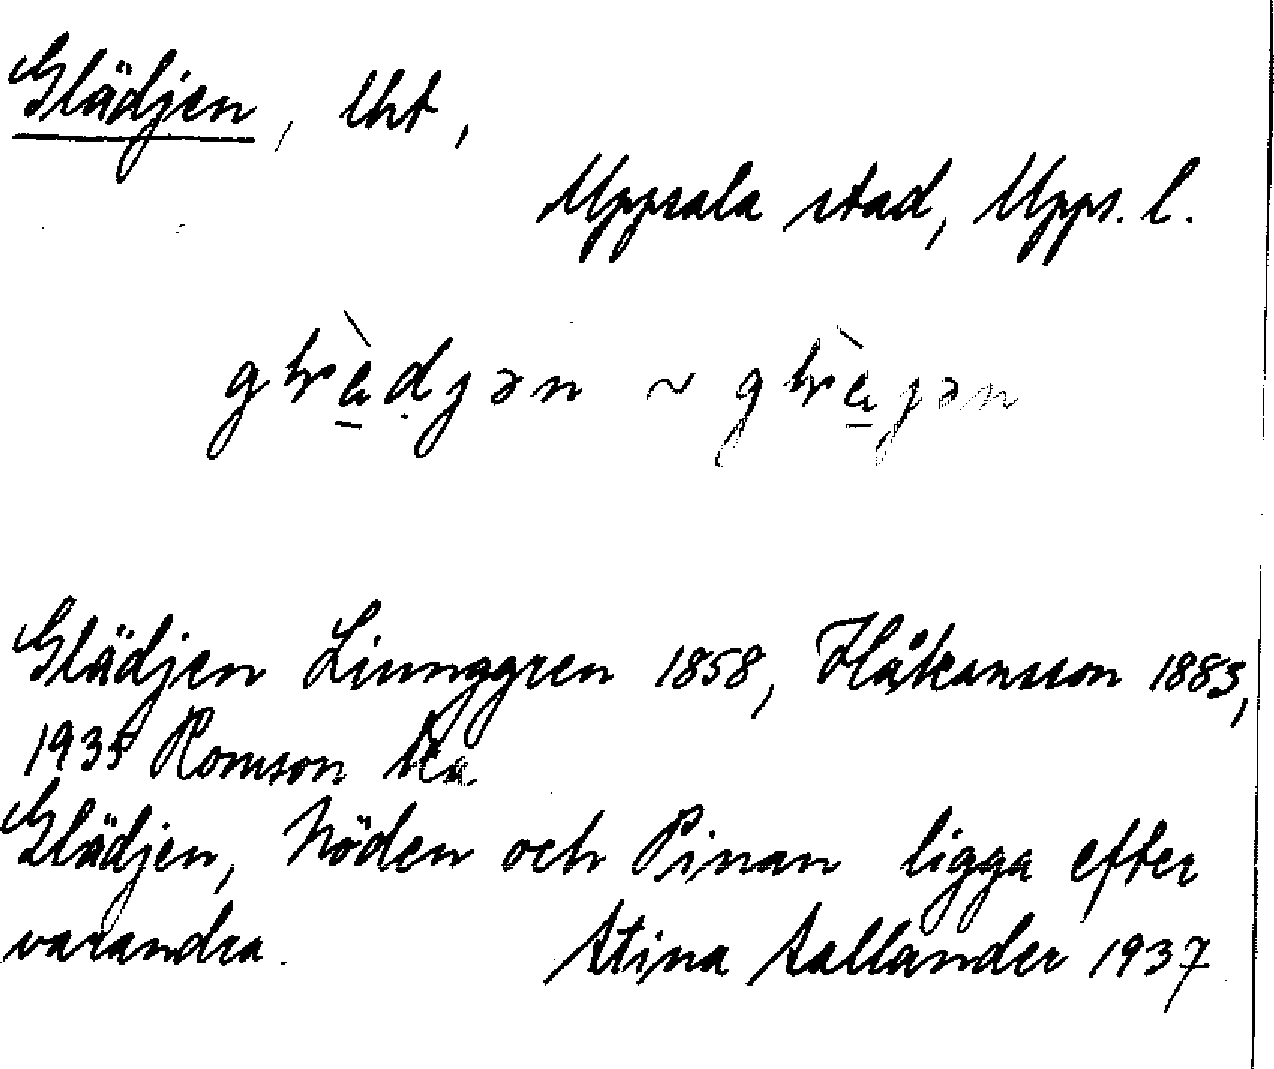 Glädjen, lht,
Uppsala stad, Upps. l.
Glädjen Linnggren 1858, Håkansson 1883,
1935 Romson
Glädjen, Nöden och Pinan ligga efter
varandra. Stina Sallander 1937